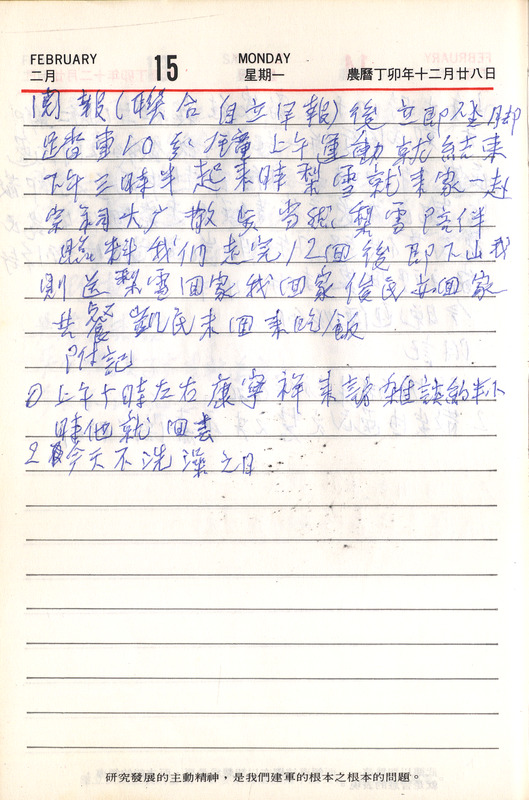 FEBRUARY 15 MONDAY
二月 星期一 農曆丁卯年十二月廿八日
閱報(聯合自立早報)後立即坐脚
踏車20分 上午運動就結束
下午三時半起來時梨雪就來家一起
大广散步當然梨雪陪伴
照料我們走完12回後即下山我
則送梨雪回家我回家俊民如回家
共餐凱民未回來吃飯
附記
① 上午十時左右康寧祥來訪雜談約半小
時他就回去
2 今天不洗澡之日
研究發展的主動精神,是我們建軍的根本之根本的問題。